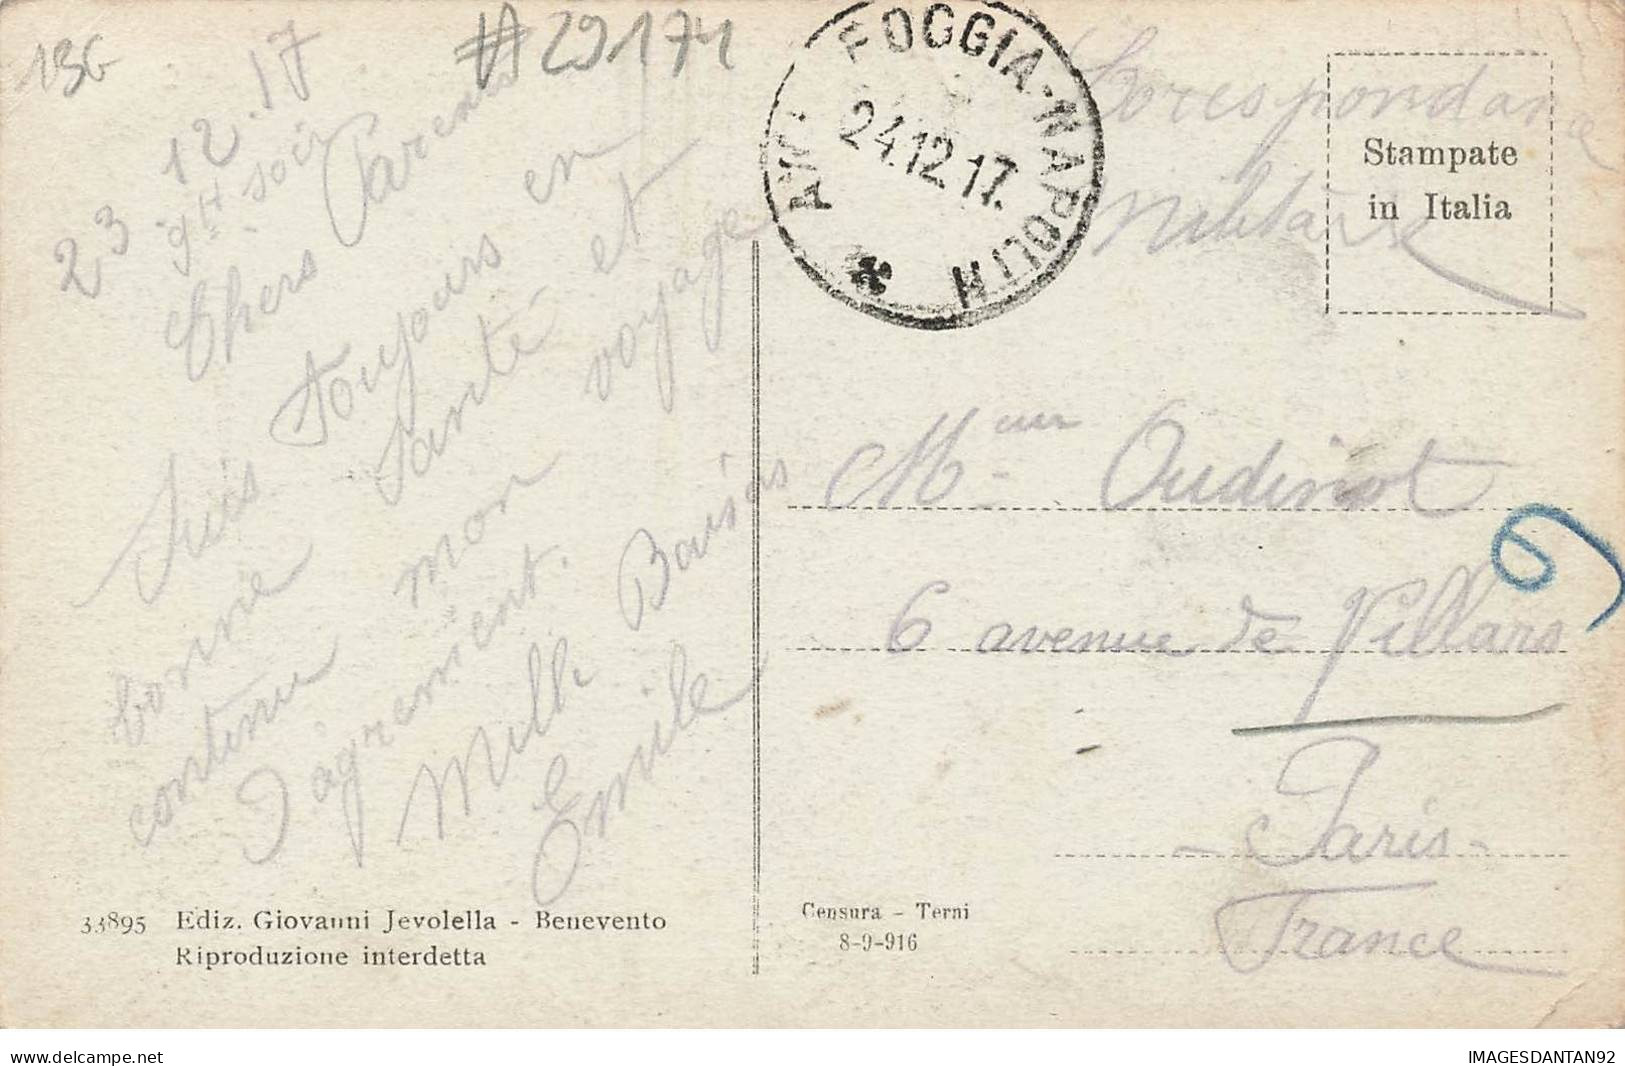 13G
#29174
23 12.17
9H soir
Chers Parents
Suis toujours en
bonne santé et
continue mon voyage
d'agrement.
Mille Baisers
Emile
FOGGIA-NAPOLI
24.12.17.
Correspondance
militaire
Stampate
in Italia
Oudinot
6 avenue de Villars
- Paris -
France
33895 Ediz. Giovanni Jevolella - Benevento
Riproduzione interdetta
Censura - Terni
8-9-916
delcampe.net
IMAGESDANTAN92